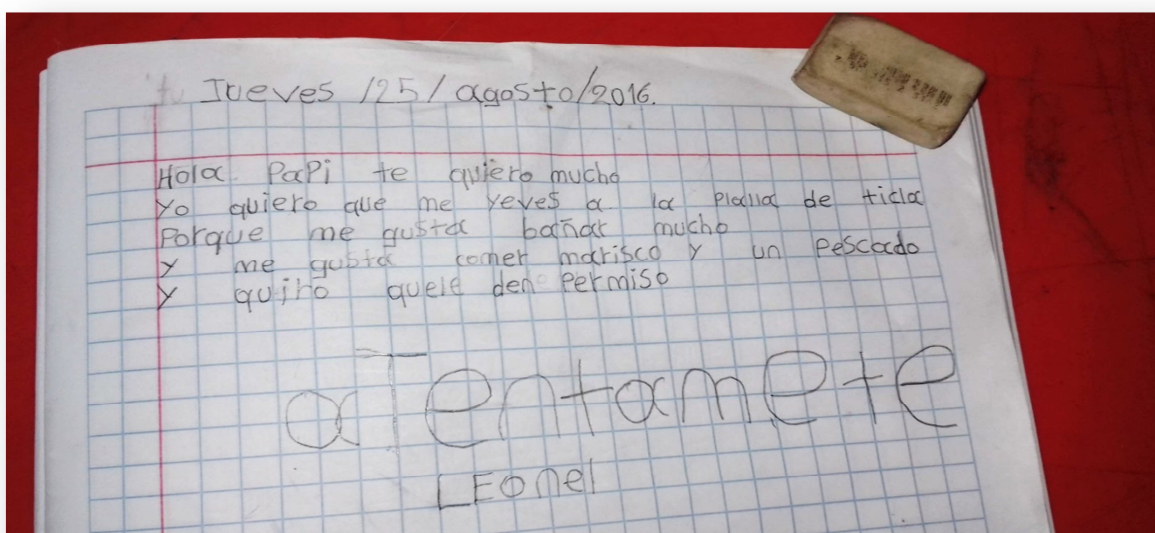 Jueves /25/agosto/2016.
Hola Papi te quiero mucho
yo quiero que me yeves a la plalla de ticla
Porque me gusta bañar mucho
y me gusta comer marisco y un Pescado
y quiro quele den Permiso
aTentamete
LEOnel